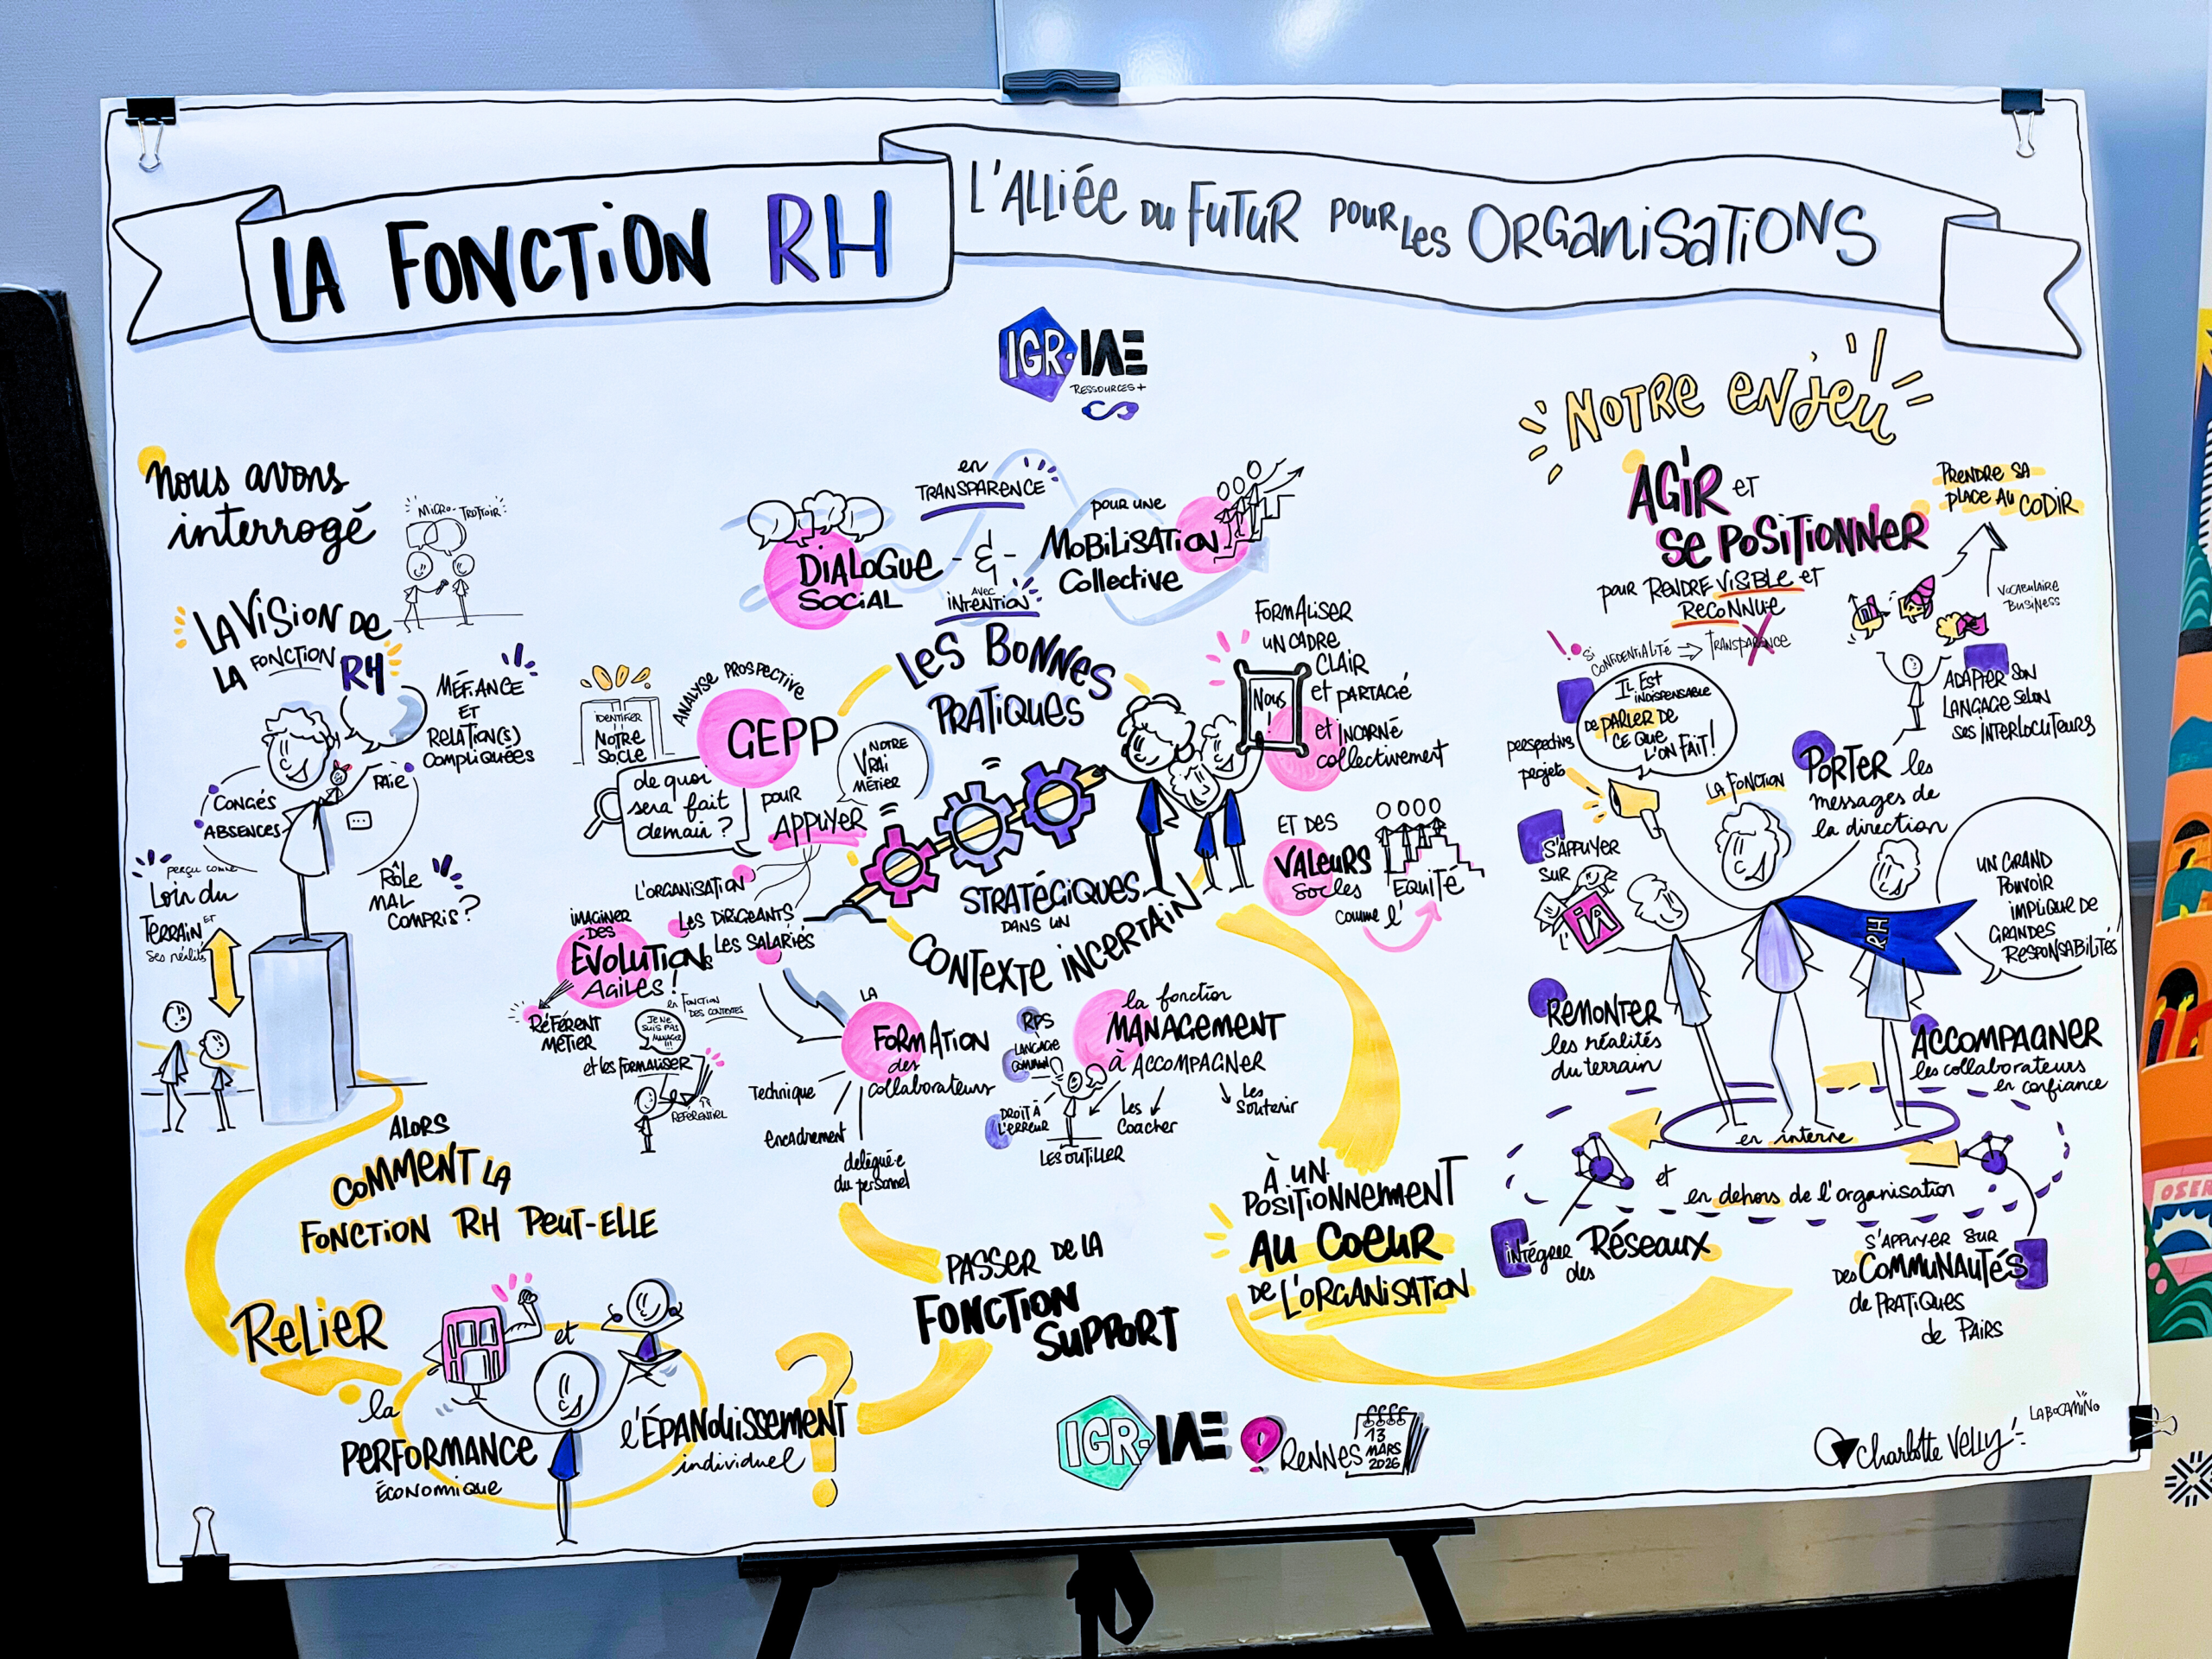 LA FONCTION RH
L'ALLIÉE DU FUTUR POUR LES ORGANISATIONS
IGR-IAE
RESSOURCES+
Nous avons
interrogé
MICRO-TROTTOIR
LA VISION DE
LA FONCTION RH
MÉFIANCE
ET
RELATION(S)
COMPLIQUÉES
PAIE
CONGÉS
ABSENCES
PERÇU COMME
Loin du
TERRAIN ET
ses réalités
RÔLE
MAL
COMPRIS ?
ALORS
COMMENT LA
FONCTION RH PEUT-ELLE
RELIER
la
PERFORMANCE
ÉCONOMIQUE
et
l'ÉPANOUISSEMENT
individuel
?
DIALOGUE
SOCIAL
en
TRANSPARENCE
- & -
AVEC
INTENTION
POUR UNE
MOBILISATION
Collective
LES BONNES
PRATIQUES
STRATÉGIQUES
DANS UN
CONTEXTE INCERTAIN
IDENTIFIER
NOTRE
SOCLE
ANALYSE PROSPECTIVE
GEPP
de quoi
sera fait
demain ?
POUR
APPUYER
NOTRE
VRAI
MÉTIER
L'ORGANISATION
LES DIRIGEANTS
LES SALARIÉS
IMAGINER
DES
ÉVOLUTIONS
AGILES !
en FONCTION
DES CONTEXTES
RÉFÉRENT
MÉTIER
JE NE
SUIS PAS
MANAGER
!!!
et les FORMALISER
RÉFÉRENTIEL
LA
FORMATION
des
collaborateurs
Technique
encadrement
délégué·e
du personnel
FORMALISER
UN CADRE
CLAIR
et PARTAGÉ
et INCARNÉ
collectivement
Nous
!
ET DES
VALEURS
socles
comme l'
ÉQUITÉ
la fonction
MANAGEMENT
à ACCOMPAGNER
RPS
LANGAGE
COMMUN
DROIT À
L'ERREUR
LES OUTILLER
Les
Coacher
Les
Soutenir
PASSER DE LA
FONCTION
SUPPORT
À UN
POSITIONNEMENT
AU COEUR
DE L'ORGANISATION
NOTRE ENJEU
AGIR ET
SE POSITIONNER
POUR RENDRE VISIBLE ET
RECONNUE
PRENDRE SA
PLACE AU CODIR
VOCABULAIRE
BUSINESS
! SI
CONFIDENTIALITÉ → TRANSPARENCE
IL EST
INDISPENSABLE
DE PARLER DE
CE QUE
L'ON FAIT !
perspectives
projets
LA FONCTION
ADAPTER SON
LANGAGE SELON
SES INTERLOCUTEURS
PORTER les
messages de
la direction
S'APPUYER
SUR
L'IA
RH
UN GRAND
POUVOIR
IMPLIQUE DE
GRANDES
RESPONSABILITÉS
REMONTER
les réalités
du terrain
ACCOMPAGNER
les collaborateurs
en confiance
en interne
et
en dehors de l'organisation
INTÉGRER
des
RÉSEAUX
S'APPUYER SUR
DES COMMUNAUTÉS
de PRATIQUES
de PAIRS
IGR-IAE
RENNES
13
MARS
2026
Charlotte Velly
LABOCAMINO
OSER